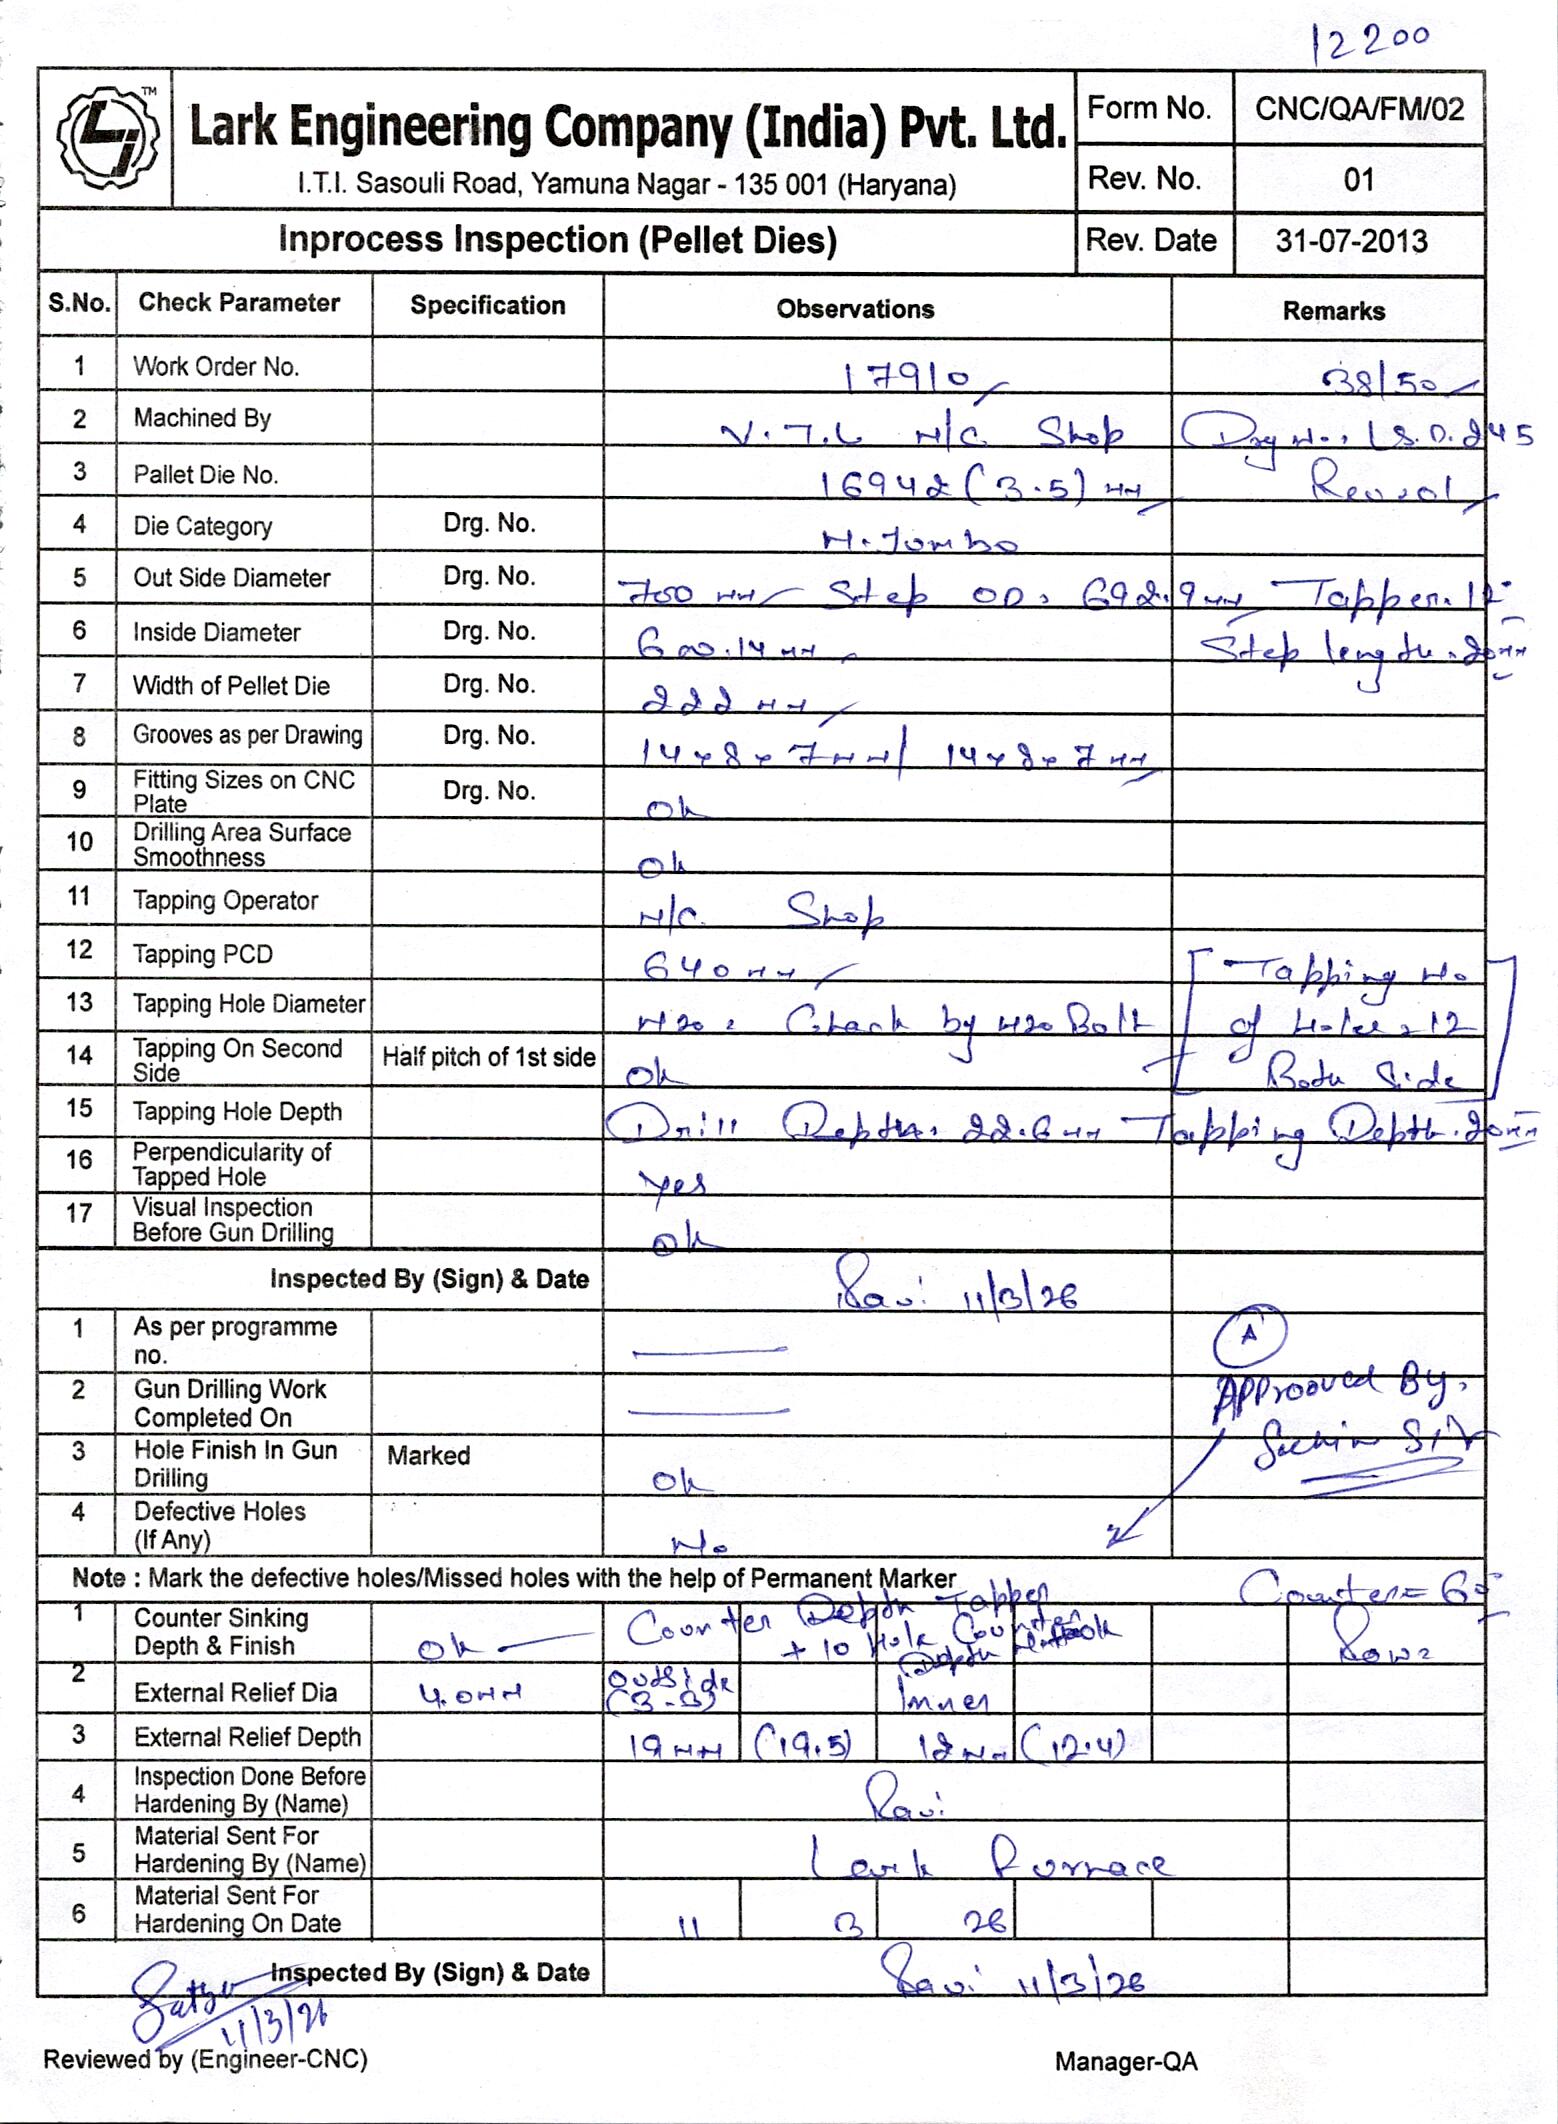 12200
TM
Lark Engineering Company (India) Pvt. Ltd.
I.T.I. Sasouli Road, Yamuna Nagar - 135 001 (Haryana)
Form No. CNC/QA/FM/02
Rev. No. 01
Inprocess Inspection (Pellet Dies) Rev. Date 31-07-2013
S.No. Check Parameter Specification Observations Remarks
1 Work Order No. 17910 38/50
2 Machined By V.T.L M/C Shop Drg No. LS.D.245
3 Pallet Die No. 16942 (3.5) mm Rev.01
4 Die Category Drg. No. M. Jumbo
5 Out Side Diameter Drg. No. 700 mm Step OD. 692.9 mm Tapper. 12°
6 Inside Diameter Drg. No. 600.14 mm Step length. 20mm
7 Width of Pellet Die Drg. No. 222 mm
8 Grooves as per Drawing Drg. No. 14x8x7mm/ 14x8x7mm
9 Fitting Sizes on CNC Plate Drg. No. Ok
10 Drilling Area Surface Smoothness Ok
11 Tapping Operator M/C. Shop
12 Tapping PCD 640mm Tapping No
13 Tapping Hole Diameter M20 = Check by M20 Bolt of Holes = 12
14 Tapping On Second Side Half pitch of 1st side Ok Both Side
15 Tapping Hole Depth Drill Depth. 22.6mm Tapping Depth. 20mm
16 Perpendicularity of Tapped Hole Yes
17 Visual Inspection Before Gun Drilling Ok
Inspected By (Sign) & Date Ravi 11/3/26
1 As per programme no. A
2 Gun Drilling Work Completed On APProoved By.
3 Hole Finish In Gun Drilling Marked Ok Sachin Sir
4 Defective Holes (If Any) No
Note : Mark the defective holes/Missed holes with the help of Permanent Marker Counter = 60°
1 Counter Sinking Depth & Finish Ok Counter Depth Tapper
+ 10 Hole Counter Depth
2 External Relief Dia 4.0mm Outside (3-3) Inner
3 External Relief Depth 19mm (19.5) 12mm (12.4)
4 Inspection Done Before Hardening By (Name) Ravi
5 Material Sent For Hardening By (Name) Lark Furnace
6 Material Sent For Hardening On Date 11 3 26
Inspected By (Sign) & Date Ravi 11/3/26
11/3/26
Reviewed by (Engineer-CNC) Manager-QA